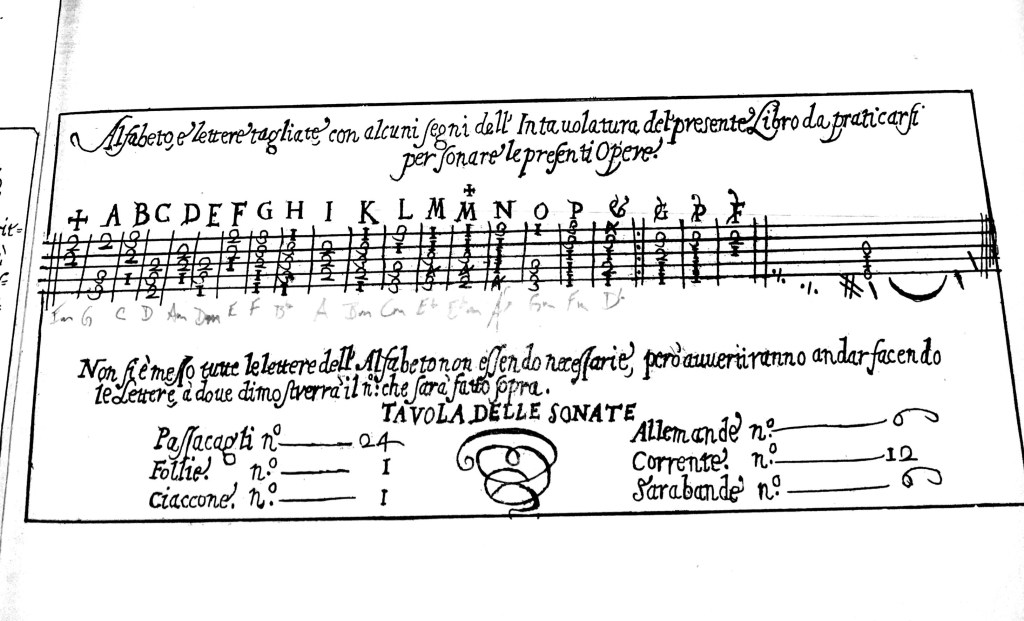 Alfabeto, e lettere tagliate, con alcuni segni dell' Intauolatura del presente Libro da praticarsi
per sonare le presenti Opere.
✠ A B C D E F G H I K L M M✠ N O P & G P F
Em G C D Am Dm E F B♭ A Bm Cm E♭ E♭m A♭ Gm Fm D♭
Non si è messo tutte le lettere dell' Alfabeto non essendo necessarie, però auuertiranno andar facendo
le Lettere, à doue dimostrerrà il n.º che sarà fatto sopra.
TAVOLA DELLE SONATE
Passacagli nº 24
Follie. nº. 1
Ciaccone. nº. 1
Allemande nº. 6
Corrente. nº. 12
Sarabande nº. 6